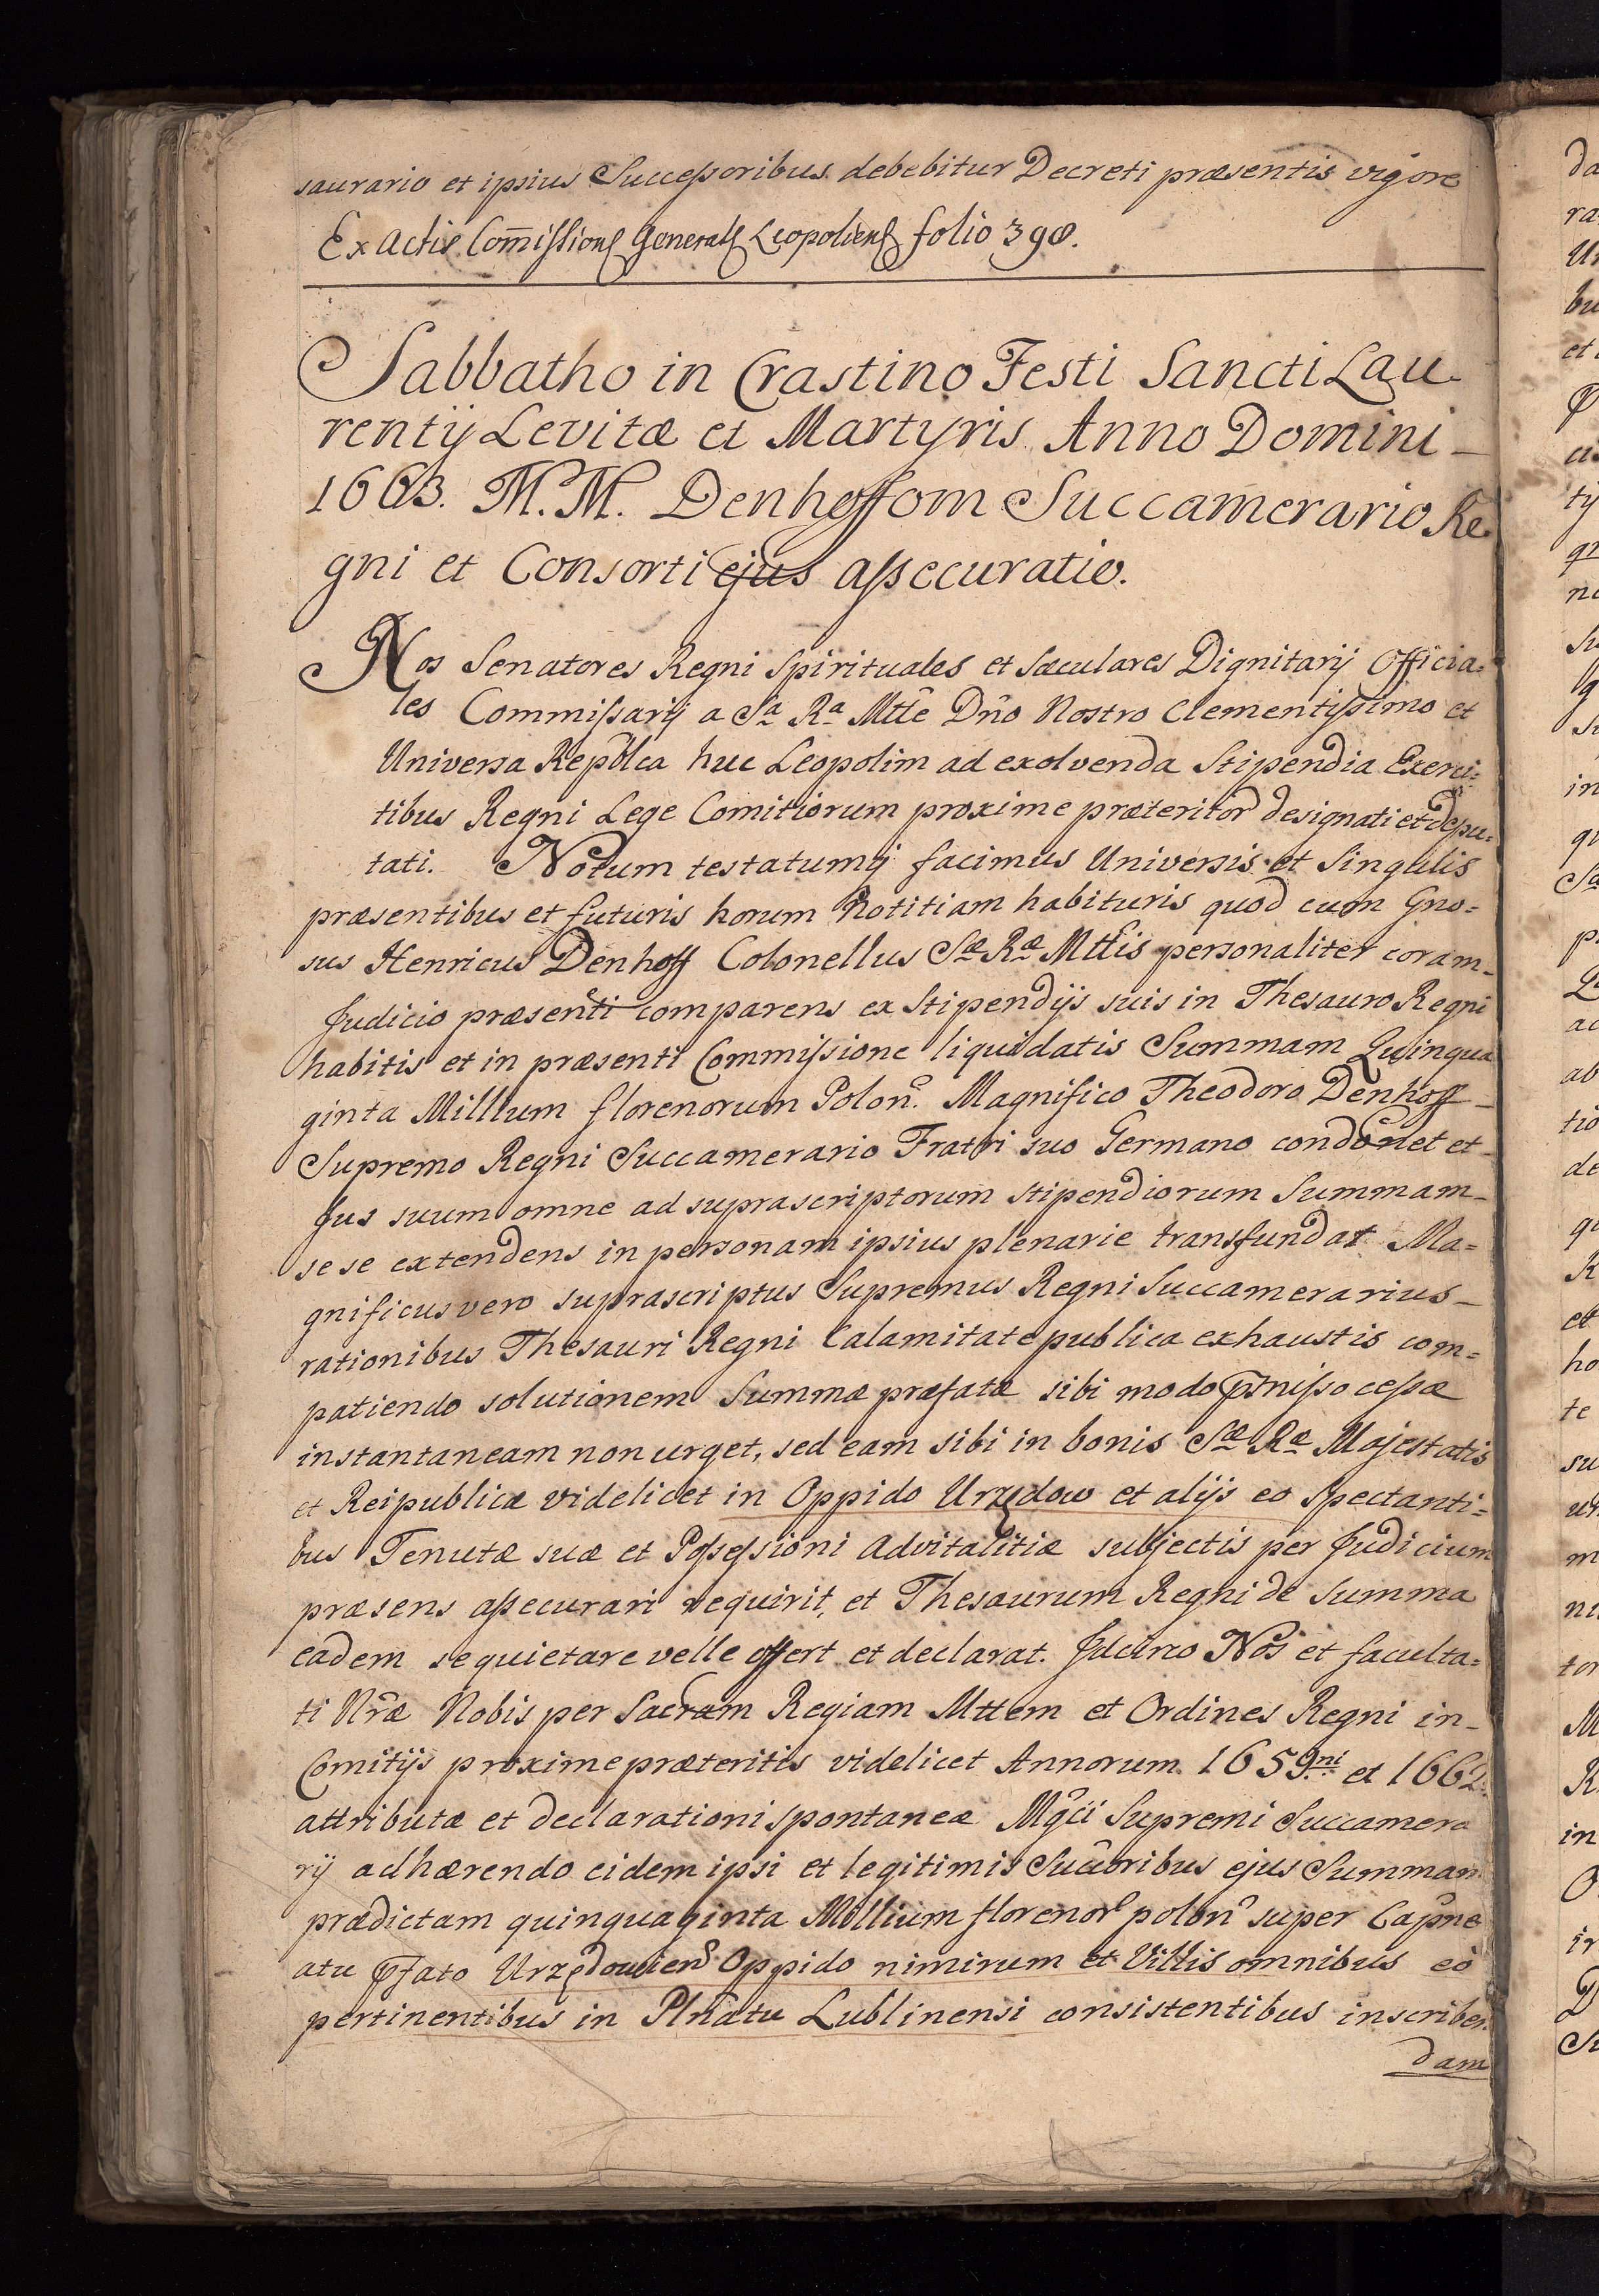 saurario et ipsius Successoribus debebitur Decreti præsentis vigore
Ex Actis Com̄ission Generał Leopoliens folio 398.
Sabbatho in Crastino Festi Sancti Lau-
rentij Levitæ et Martyris Anno Domini
1663. M. M. Denhoffom Succamerario Re
gni et Consorti ejus assecuratio.
Nos Senatores Regni Spirituales et Sæculares Dignitarij Officia=
les Commissarij a Sa Ra Mtte Dño Nostro Clementissimo et
Universa Republca huc Leopolim ad exolvenda Stipendia Exerci=
tibus Regni Lege Comitiorum proxime præteritor designati et depu=
tati. Notum testatumq facimus Universis et Singulis
præsentibus et futuris horum Notitiam habituris quod cum Gno=
sus Henricus Denhoff Colonellus Sæ Ræ Mttis personaliter coram
Judicio præsenti comparens ex Stipendijs suis in Thesauro Regni
habitis et in præsenti Commissione liquidatis Summam Quinqua
ginta Millium florenorum Polon. Magnifico Theodoro Denhoff
Supremo Regni Succamerario Fratri suo Germano condonet et
Jus suum omne ad suprascriptorum stipendiorum Summam
sese extendens in personam ipsius plenarie transfundat Ma=
gnificus vero suprascriptus Supremus Regni Succamerarius
rationibus Thesauri Regni Calamitate publica exhaustis com=
patiendo solutionem Summæ præfatæ sibi modo pmisso cessæ
instantaneam non urget, sed eam sibi in bonis Sæ Ræ Majestatis
et Reipublicæ videlicet in Oppido Urzędow et alijs eo Spectanti=
bus Tenutæ suæ et Possessioni Advitalitiæ subjectis per Judicium
præsens assecurari requirit, et Thesaurum Regni de Summa
eadem se quietare velle offert et declarat. Idcirco Nos et faculta=
ti Nr̃æ Nobis per Sacram Regiam Mttem et Ordines Regni in
Comitijs proxime præteritis videlicet Annorum 1659ni et 1662
attributæ et declarationi spontaneæ Mgci Supremi Succamera
rij adhærendo eidem ipsi et legitimis Succoribus ejus Summam
prædictam quinquaginta Millium florenor polon super Capne
atu pfato Urzędowien Oppido nimirum et Villis omnibus eo
pertinentibus in Plñatu Lublinensi consistentibus inscriben
dam